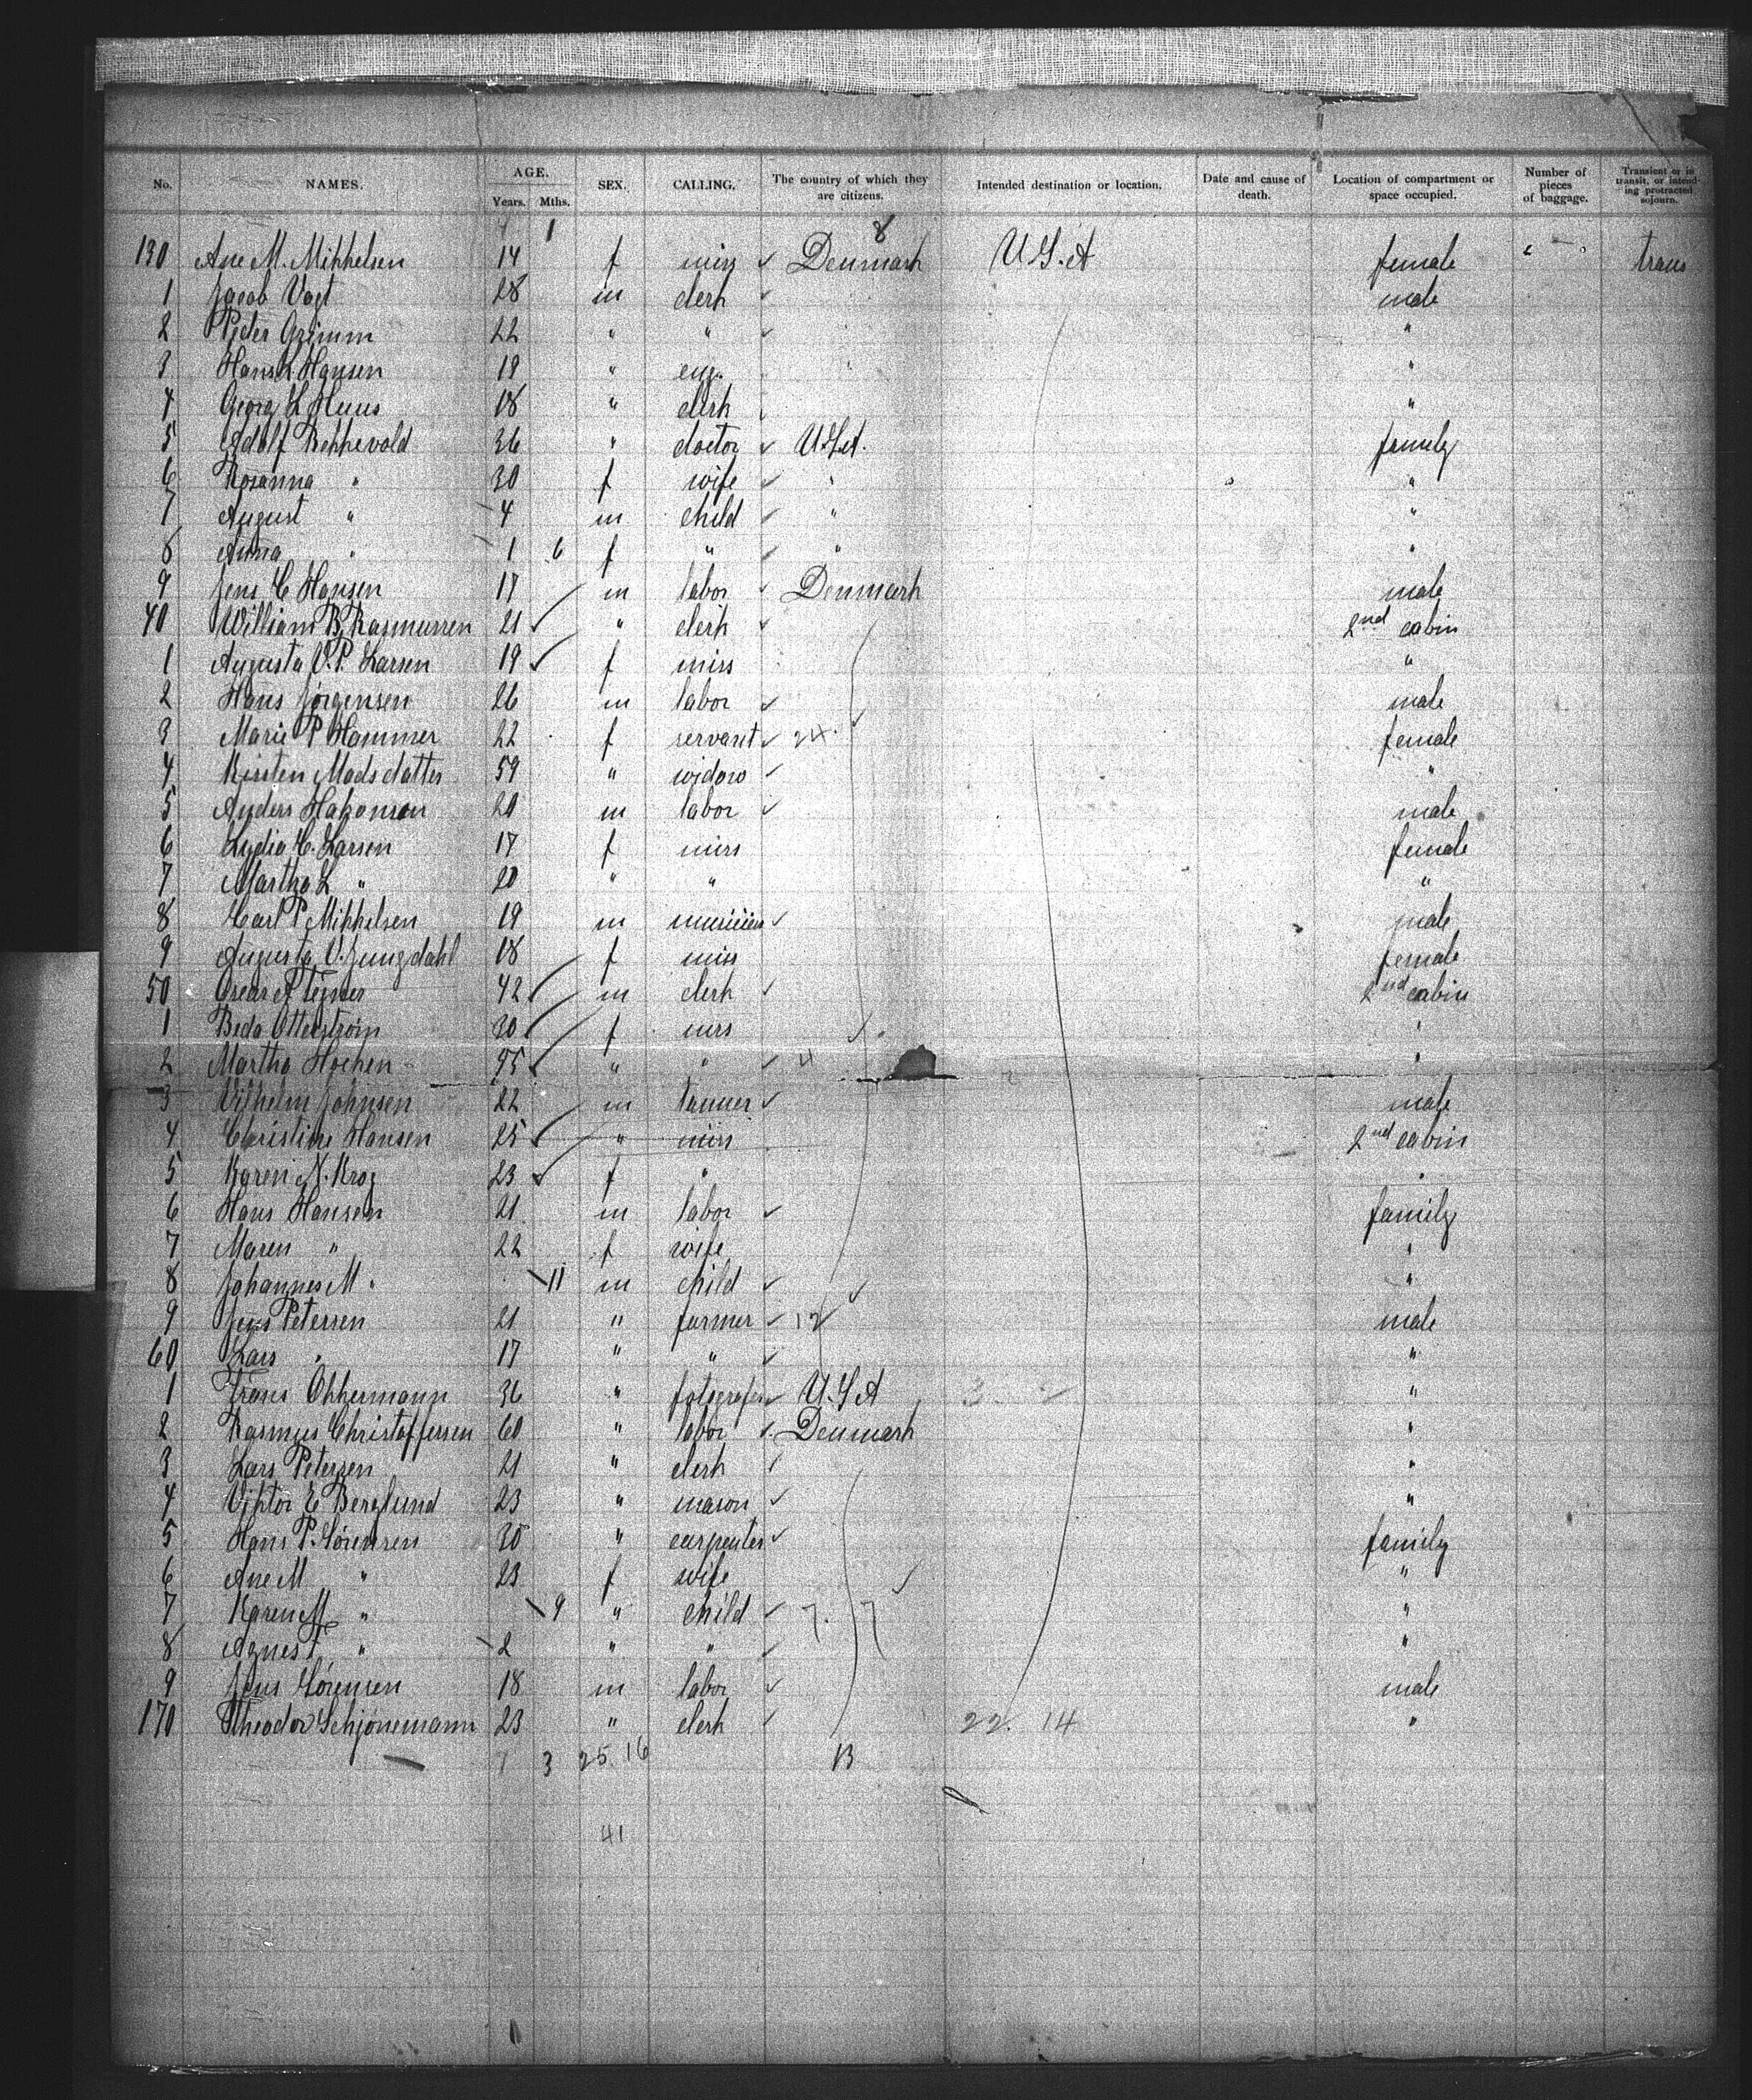 No. NAMES. AGE. Years. Mths. SEX. CALLING. The country of which they are citizens. Intended destination or location. Date and cause of death. Location of compartment or space occupied. Number of pieces of baggage. Transient or in transit, or intending protracted sojourn.
1 8
130 Ane M. Mikkelsen 14 f miss Denmark U.S.A female trans
1 Jacob Vogt 28 m clerk male
2 Peder Grimm 22 " " "
3 Hans K Hansen 19 " eng. "
4 Georg L Huus 18 " clerk "
5 Adolf Bekkevold 36 " doctor U.S.A. family
6 Rosanna " 30 f wife " "
7 August " 4 m child " "
8 Anna " 1 6 f " " "
9 Jens C Hansen 17 m labor Denmark male
40 William B. Rasmussen 21 " clerk 2nd cabin
1 Augusta V.P. Larsen 19 f miss "
2 Hans Jörgensen 26 m labor male
3 Marie P Hammer 22 f servant 24 female
4 Kirsten Madsdatter 59 " widow "
5 Anders Hakonson 20 m labor male
6 Lydia C. Larsen 17 f miss female
7 Martha L " 20 " " "
8 Carl P Mikkelsen 19 m musician male
9 Augusta V. Jungdahl 18 f miss female
50 Oscar A Tegner 42 m clerk 2nd cabin
1 Beda Otterström 30 f mrs "
2 Martha Hochen " " 4 "
3 Vilhelm Johnsen 22 m tanner male
4 Christine Hansen 25 " miss 2nd cabin
5 Karen N. Krog 23 f " "
6 Hans Hansen 21 m labor family
7 Maren " 22 f wife "
8 Johannes M " 11 m child "
9 Jens Petersen 21 " farmer 12 male
60 Lars " 17 " " "
1 Frans Ohkermann 36 " fotografer U.S.A 3 "
2 Rasmus Christoffersen 60 " labor Denmark "
3 Lars Petersen 21 " clerk "
4 Viktor E Berglund 23 " mason "
5 Hans P. Sörensen 30 " carpenter family
6 Ane M " 23 f wife "
7 Karen M " 9 " child 7. 7 "
8 Agnes F. " 2 " " "
9 Jens Sörensen 18 m labor male
170 Theodor Schjönemann 23 " clerk 22. 14 "
7 3 25. 16 13
41